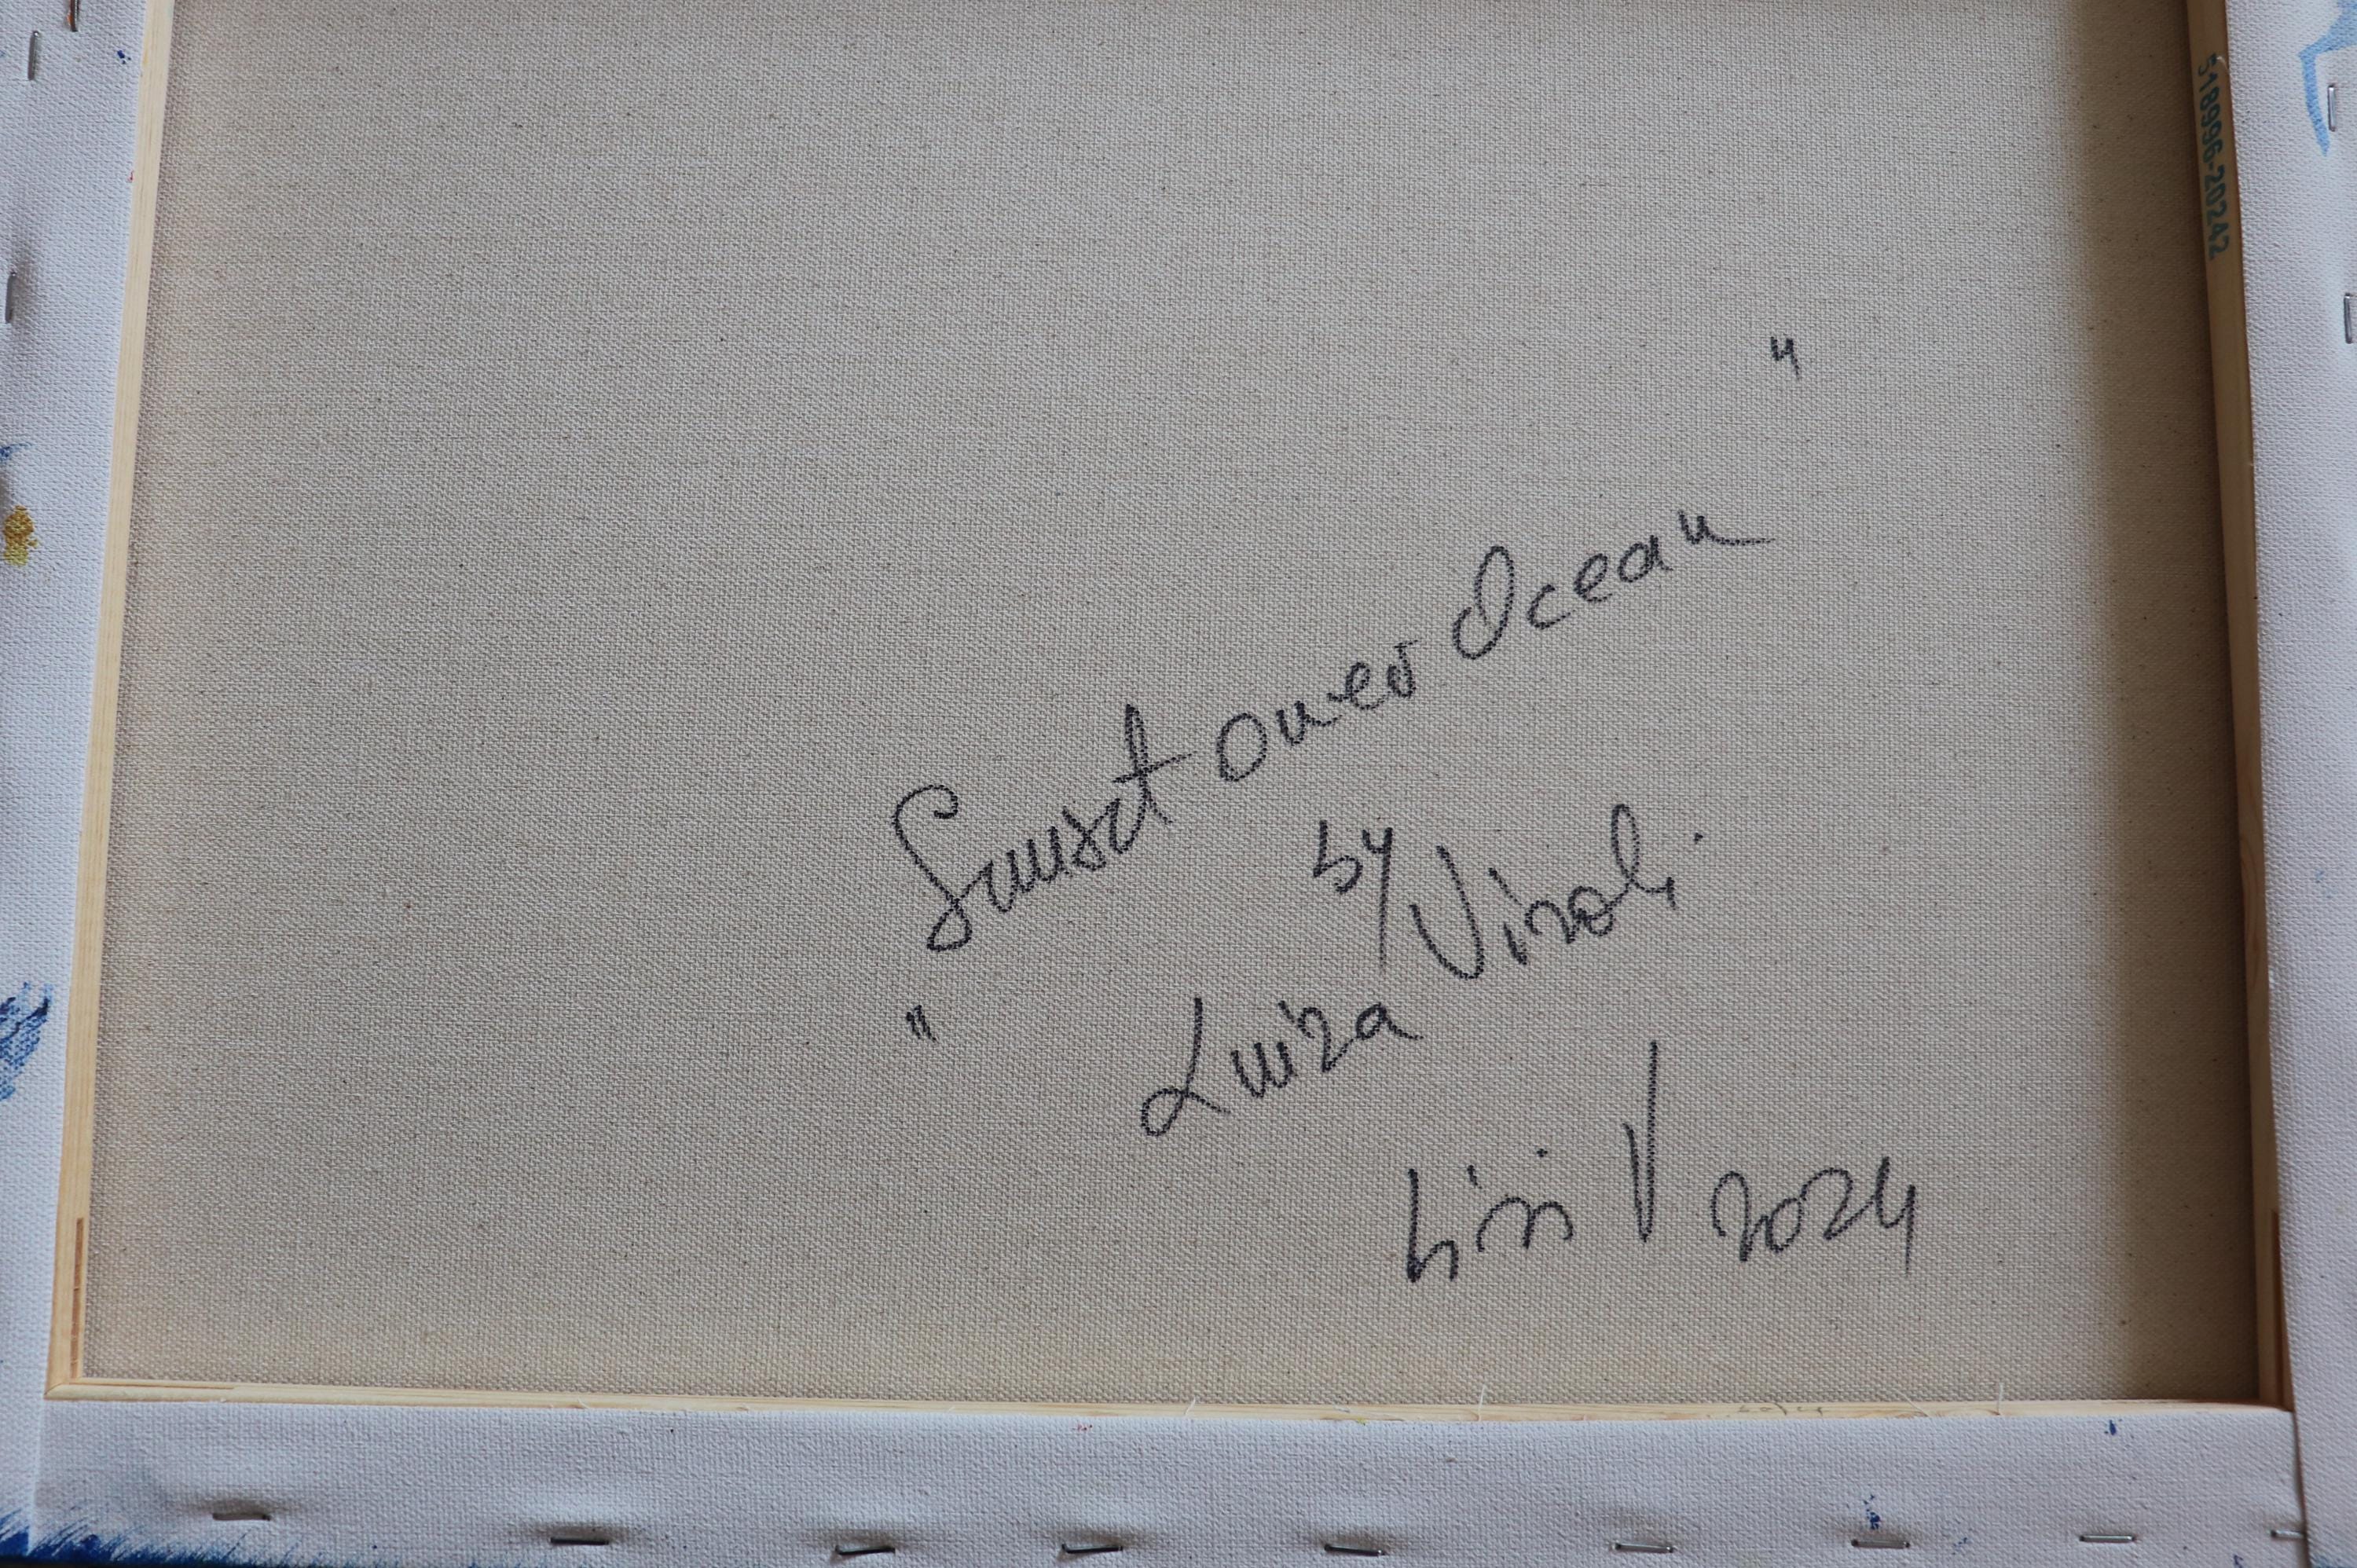 "Sunset over Ocean"
by
Luiza Vizoli
Lizi V 2024
518996-20242